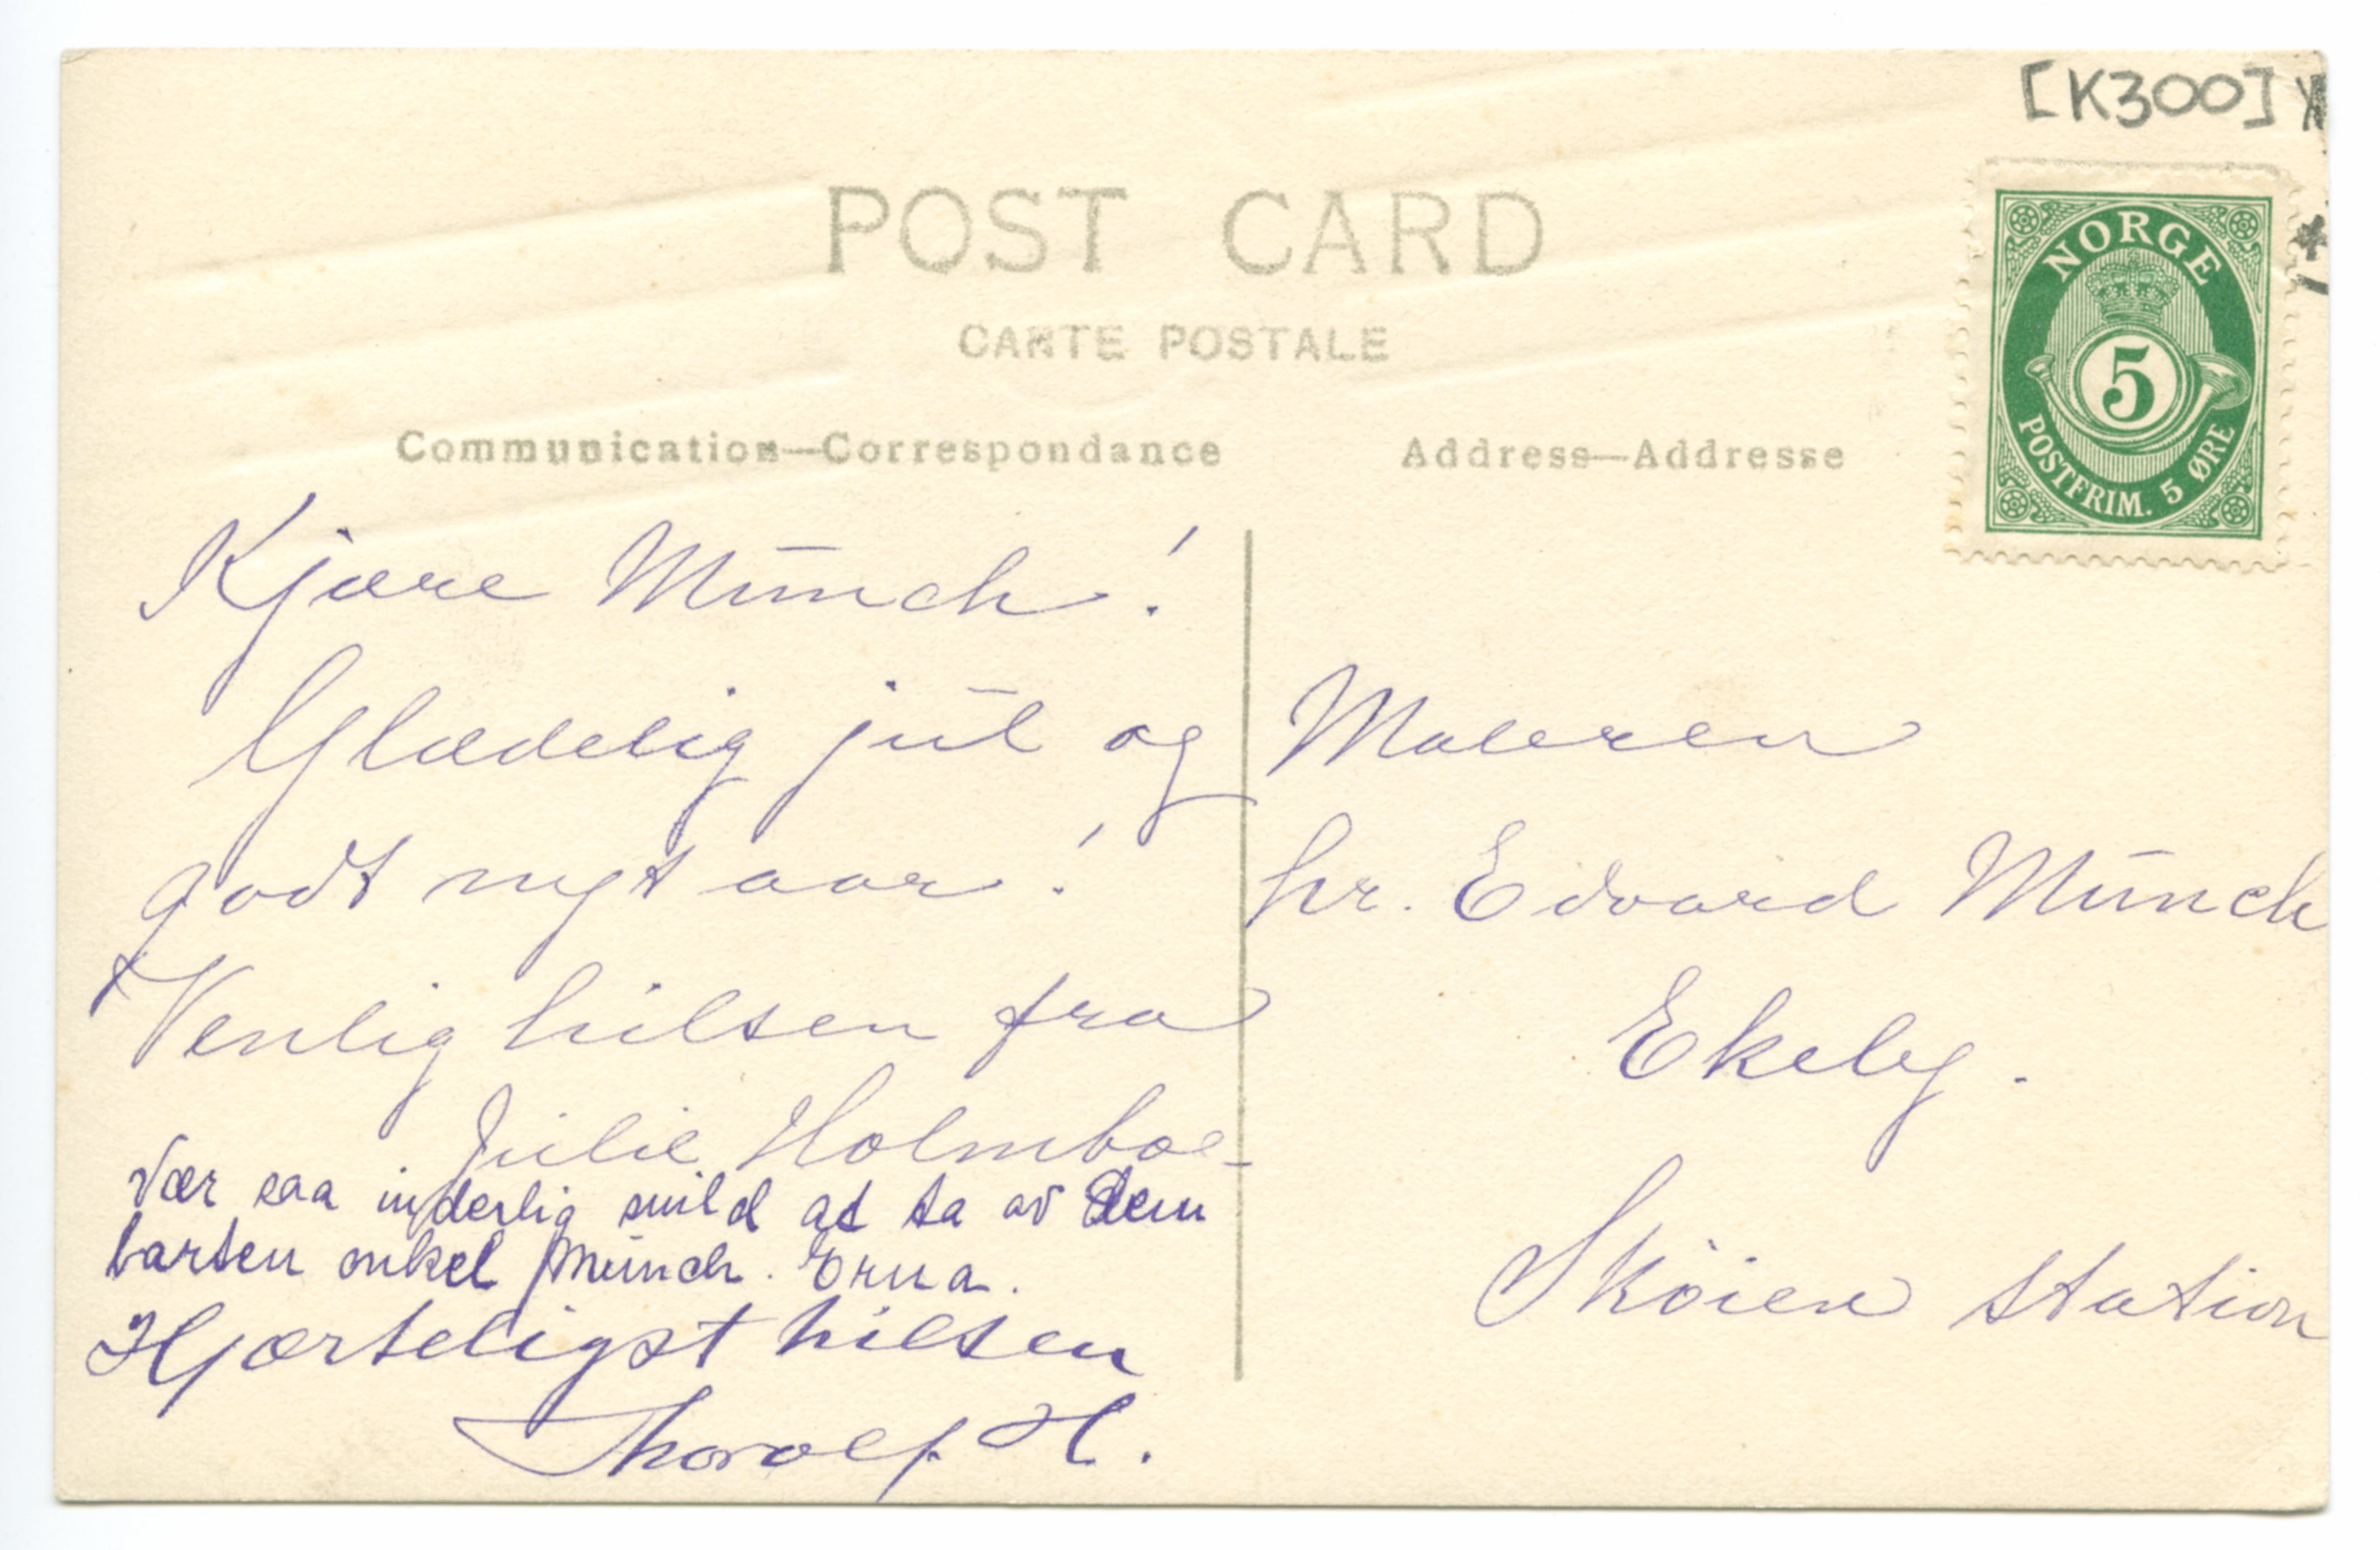 [K300]
POST CARD
CARTE POSTALE
Communication—Correspondance
Address—Addresse
NORGE
5
POSTFRIM. 5 ØRE
Kjære Munch!
Glædelig jul og
godt nyt aar!
Venlig hilsen fra
Julie Holmboe
Vær saa inderlig snild at ta av Dem
barten onkel Munch. Erna.
Hjærteligst hilsen
Thorolf H.
Maleren
hr. Edvard Munch
Ekely.
Sköien station